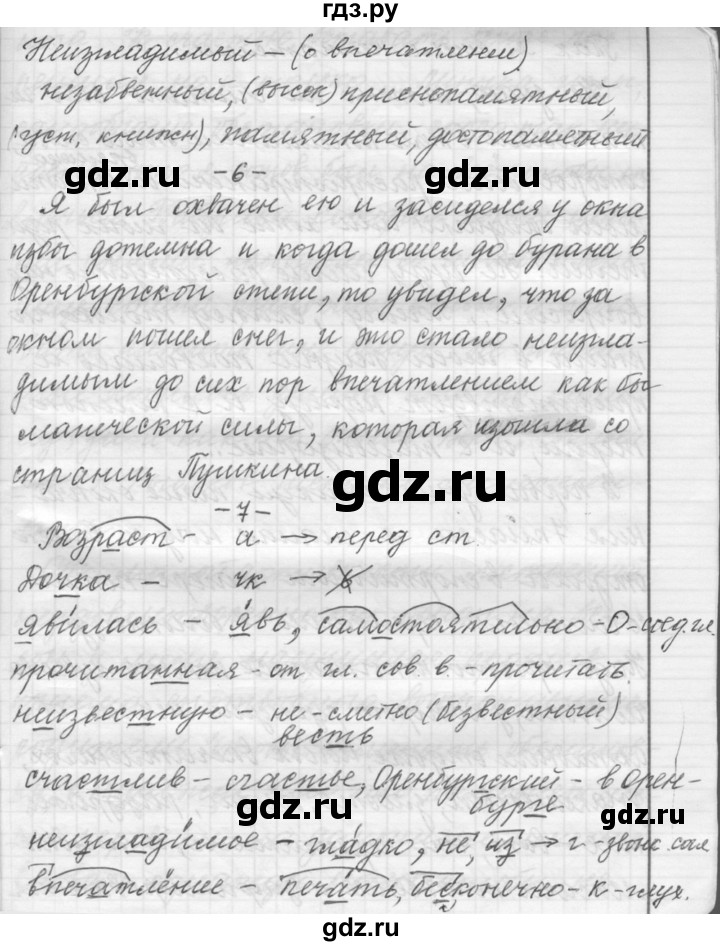 гдз.ру
Неизгладимый – (о впечатлении)
незабвенный, (высок) приснопамятный,
(уст, книжн), памятный, достопаметный
gdz.ru gdz.ru
-6-
Я был охвачен ею и засиделся у окна
избы дотемна и когда дошел до бурана в
Оренбургской степи, то увидел, что за
окном пошел снег, и это стало неизгла-
димым до сих пор впечатлением как бы
магической силы, которая изошла со
страниц Пушкина.
gdz.ru gdz.ru
-7-
Возраст – а → перед ст.
Дочка – чк → ь
явилась – явь, самостоятельно – О – соед. гл.
прочитанная – от гл. сов. в. – прочитать.
неизвестную – не – сметно (безвестный)
весть
счастлив – счастье, Оренбургский – в Орен-
бурге
gdz.ru gdz.ru
неизгладимое – гладко, не, из → г – звонк. сал
впечатление – печать, бесконечно – к – глух.
gdz.ru gdz.ru